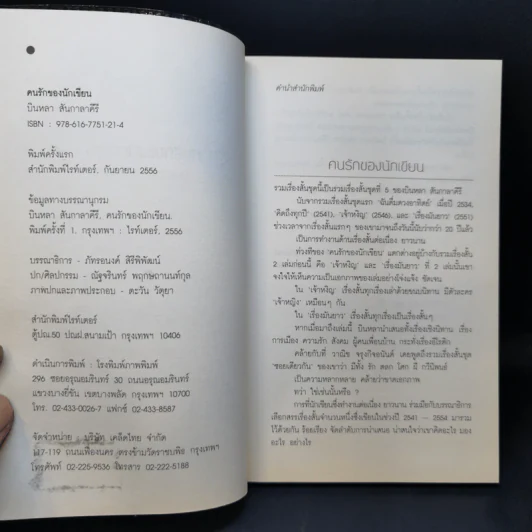 คนรักของนักเขียน
บินหลา สันกาลาคีรี
ISBN : 978-616-7751-21-4
พิมพ์ครั้งแรก
สำนักพิมพ์ไรท์เตอร์. กันยายน 2556
ข้อมูลทางบรรณานุกรม
บินหลา สันกาลาคีรี, คนรักของนักเขียน.
พิมพ์ครั้งที่ 1. กรุงเทพฯ : ไรท์เตอร์. 2556
บรรณาธิการ - ภัทรอนงค์ สิรีพิพัฒน์
ปก/ศิลปกรรม - ณัฐจรินทร์ พฤกษถานนท์กุล
ภาพปกและภาพประกอบ - ตะวัน วัตุยา
สำนักพิมพ์ไรท์เตอร์
ตู้ปณ.50 ปณฝ.สนามเป้า กรุงเทพฯ 10406
ดำเนินการพิมพ์ : โรงพิมพ์ภาพพิมพ์
296 ซอยอรุณอมรินทร์ 30 ถนนอรุณอมรินทร์
แขวงบางยี่ขัน เขตบางพลัด กรุงเทพฯ 10700
โทร. 02-433-0026-7 แฟกซ์ 02-433-8587
จัดจำหน่าย : บริษัท เคล็ดไทย จำกัด
117-119 ถนนเฟื่องนคร ตรงข้ามวัดราชบพิธ กรุงเทพฯ
โทรศัพท์ 02-225-9536 โทรสาร 02-222-5188
คำนำสำนักพิมพ์
คนรักของนักเขียน
รวมเรื่องสั้นชุดนี้เป็นรวมเรื่องสั้นชุดที่ 5 ของบินหลา สันกาลาคีรี
นับจากรวมเรื่องสั้นชุดแรก 'ฉันดื่มดวงอาทิตย์' เมื่อปี 2534,
'คิดถึงทุกปี' (2541), 'เจ้าหงิญ' (2546), และ 'เรื่องฝันยาว' (2551)
ช่วงเวลาจากเรื่องสั้นแรกๆ ของเขามาจนถึงวันนี้นับว่ากว่า 20 ปีแล้ว
เป็นการทำงานด้านเรื่องสั้นต่อเนื่อง ยาวนาน
ท่วงทีของ 'คนรักของนักเขียน' แตกต่างอยู่บ้างกับรวมเรื่องสั้น
2 เล่มก่อนนี้ คือ 'เจ้าหงิญ' และ
จงใจให้เห็นความเป็นเอกภาพของเล่มอย่างแจ่มแจ้ง ชัดเจน
ใน 'เจ้าหงิญ' เรื่องสั้นทุกเรื่องเล่าด้วยขนบนิทาน มีตัวละคร
'เจ้าหญิง' เหมือนๆ กัน
หากเมื่อมาถึงเล่มนี้ บินหลานำเสนอทั้งเรื่องเชิงนิทาน เรื่อง
การเมือง ความรัก สังคม ผู้คนเพื่อนบ้าน กระทั่งเรื่องอีโรติก
คล้ายกับที่ วาณิช จรุงกิจอนันต์ เคยพูดถึงรวมเรื่องสั้นชุด
'ซอยเดียวกัน' ของเขาว่า มีทั้ง รัก ตลก โศก ผี กวีนิพนธ์
เป็นความหลากหลาย คล้ายว่าขาดเอกภาพ
ทว่า ใช่เช่นนั้นหรือ ?
การที่นักเขียนซึ่งทำงานต่อเนื่อง ยาวนาน ร่วมมือกับบรรณาธิการ
เลือกสรรเรื่องสั้นจำนวนหนึ่งซึ่งเขียนในช่วงปี 2541 - 2554 มารวม
ไว้ด้วยกัน ร้อยเรียง จัดลำดับการนำเสนอ น่าสนใจว่าเขาคิดอะไร มอง
อะไร อย่างไร